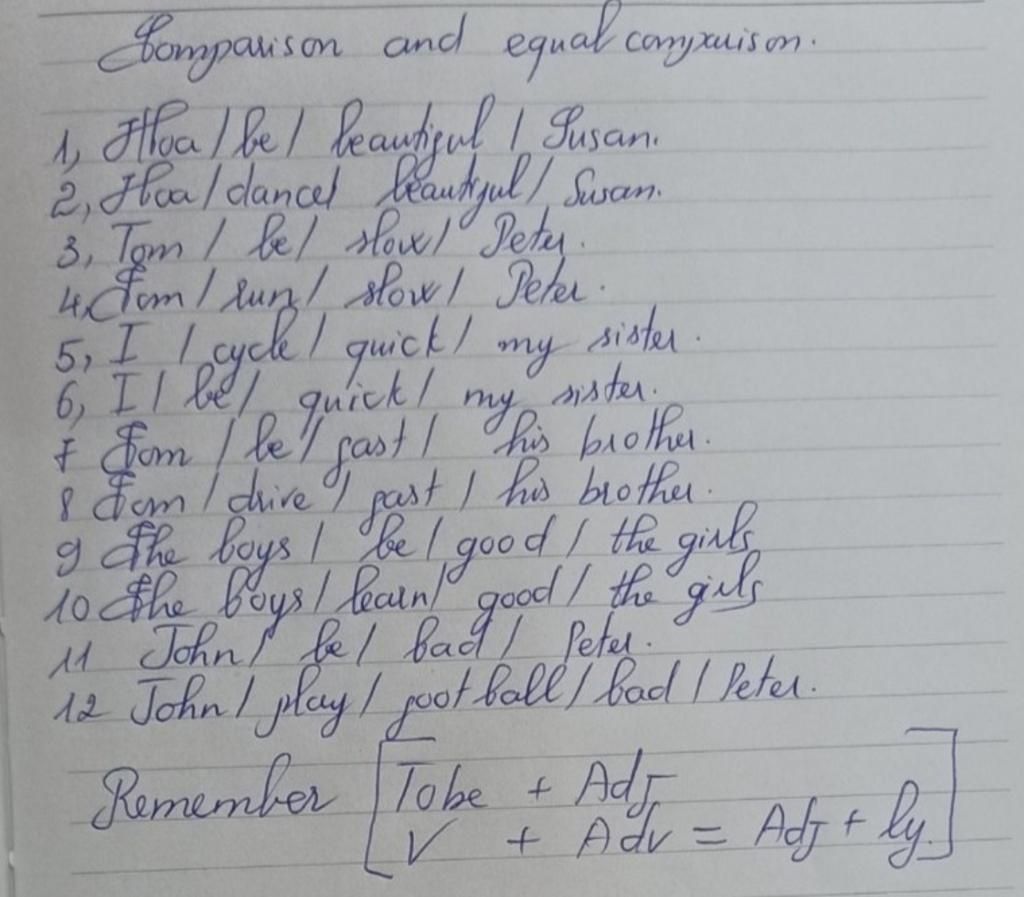 Comparison and equal comparison.
1, Hoa / be / beautiful / Susan.
2, Hoa / dance / beautiful / Susan.
3, Tom / be / slow / Peter.
4. Tom / run / slow / Peter.
5, I / cycle / quick / my sister.
6, I / be / quick / my sister.
7 Tom / be / fast / his brother.
8 Tom / drive / fast / his brother.
9 The boys / be / good / the girls
10 The boys / learn / good / the girls
11 John / be / bad / Peter.
12 John / play / football / bad / Peter.
Remember [Tobe + Adj
V + Adv = Adj + ly.]